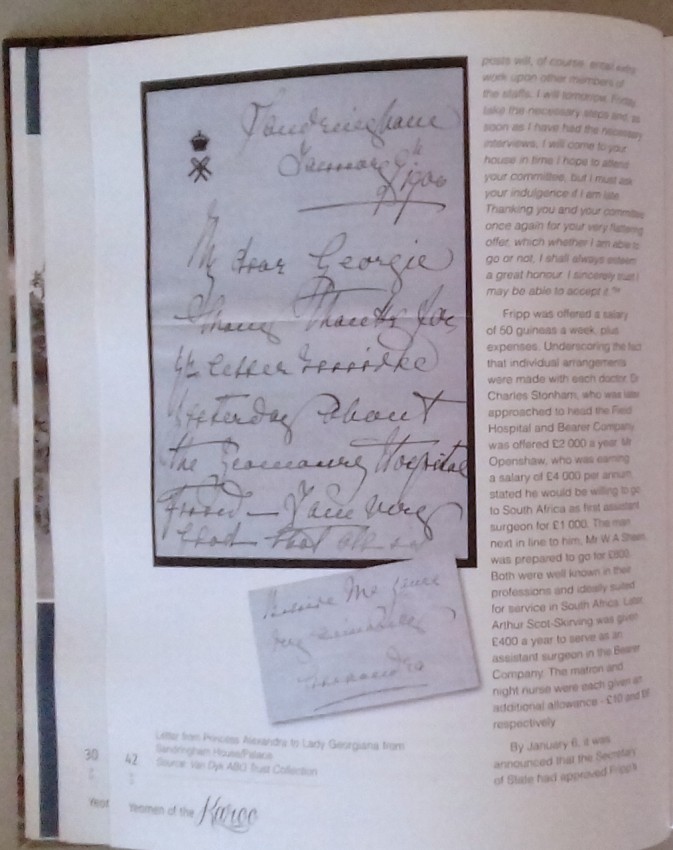 Sandringham
January 9th
1900
My dear Georgie
Many Thanks for
yr letter
yesterday about
the Yeomanry Hospital
Fund — I am very
glad that all
Believe me yours
very
Alexandra
Letter from Princess Alexandra to Lady Georgiana from
Sandringham House/Palace
Source: Van Dyk ABO Trust Collection
30
42
Women of the Karoo
posts will, of course, entail extra
work upon other members of
the staffs. I will tomorrow, Friday,
take the necessary steps and as
soon as I have had the necessary
interviews, I will come to your
house in time I hope to attend
your committee, but I must ask
your indulgence if I am late.
Thanking you and your committee
once again for your very flattering
offer, which whether I am able to
go or not, I shall always esteem
a great honour. I sincerely trust I
may be able to accept it."
Fripp was offered a salary
of 50 guineas a week, plus
expenses. Underscoring the fact
that individual arrangements
were made with each doctor, Dr
Charles Stonham, who was later
approached to head the Field
Hospital and Bearer Company,
was offered £2 000 a year. Mr
Openshaw, who was earning
a salary of £4 000 per annum,
stated he would be willing to go
to South Africa as first assistant
surgeon for £1 000. The man
next in line to him, Mr W A Sheen,
was prepared to go for £800.
Both were well known in their
professions and ideally suited
for service in South Africa. Later,
Arthur Scot-Skirving was given
£400 a year to serve as an
assistant surgeon in the Bearer
Company. The matron and
night nurse were each given an
additional allowance - £10 and
respectively.
By January 6, it was
announced that the Secretary
of State had approved Fripp's